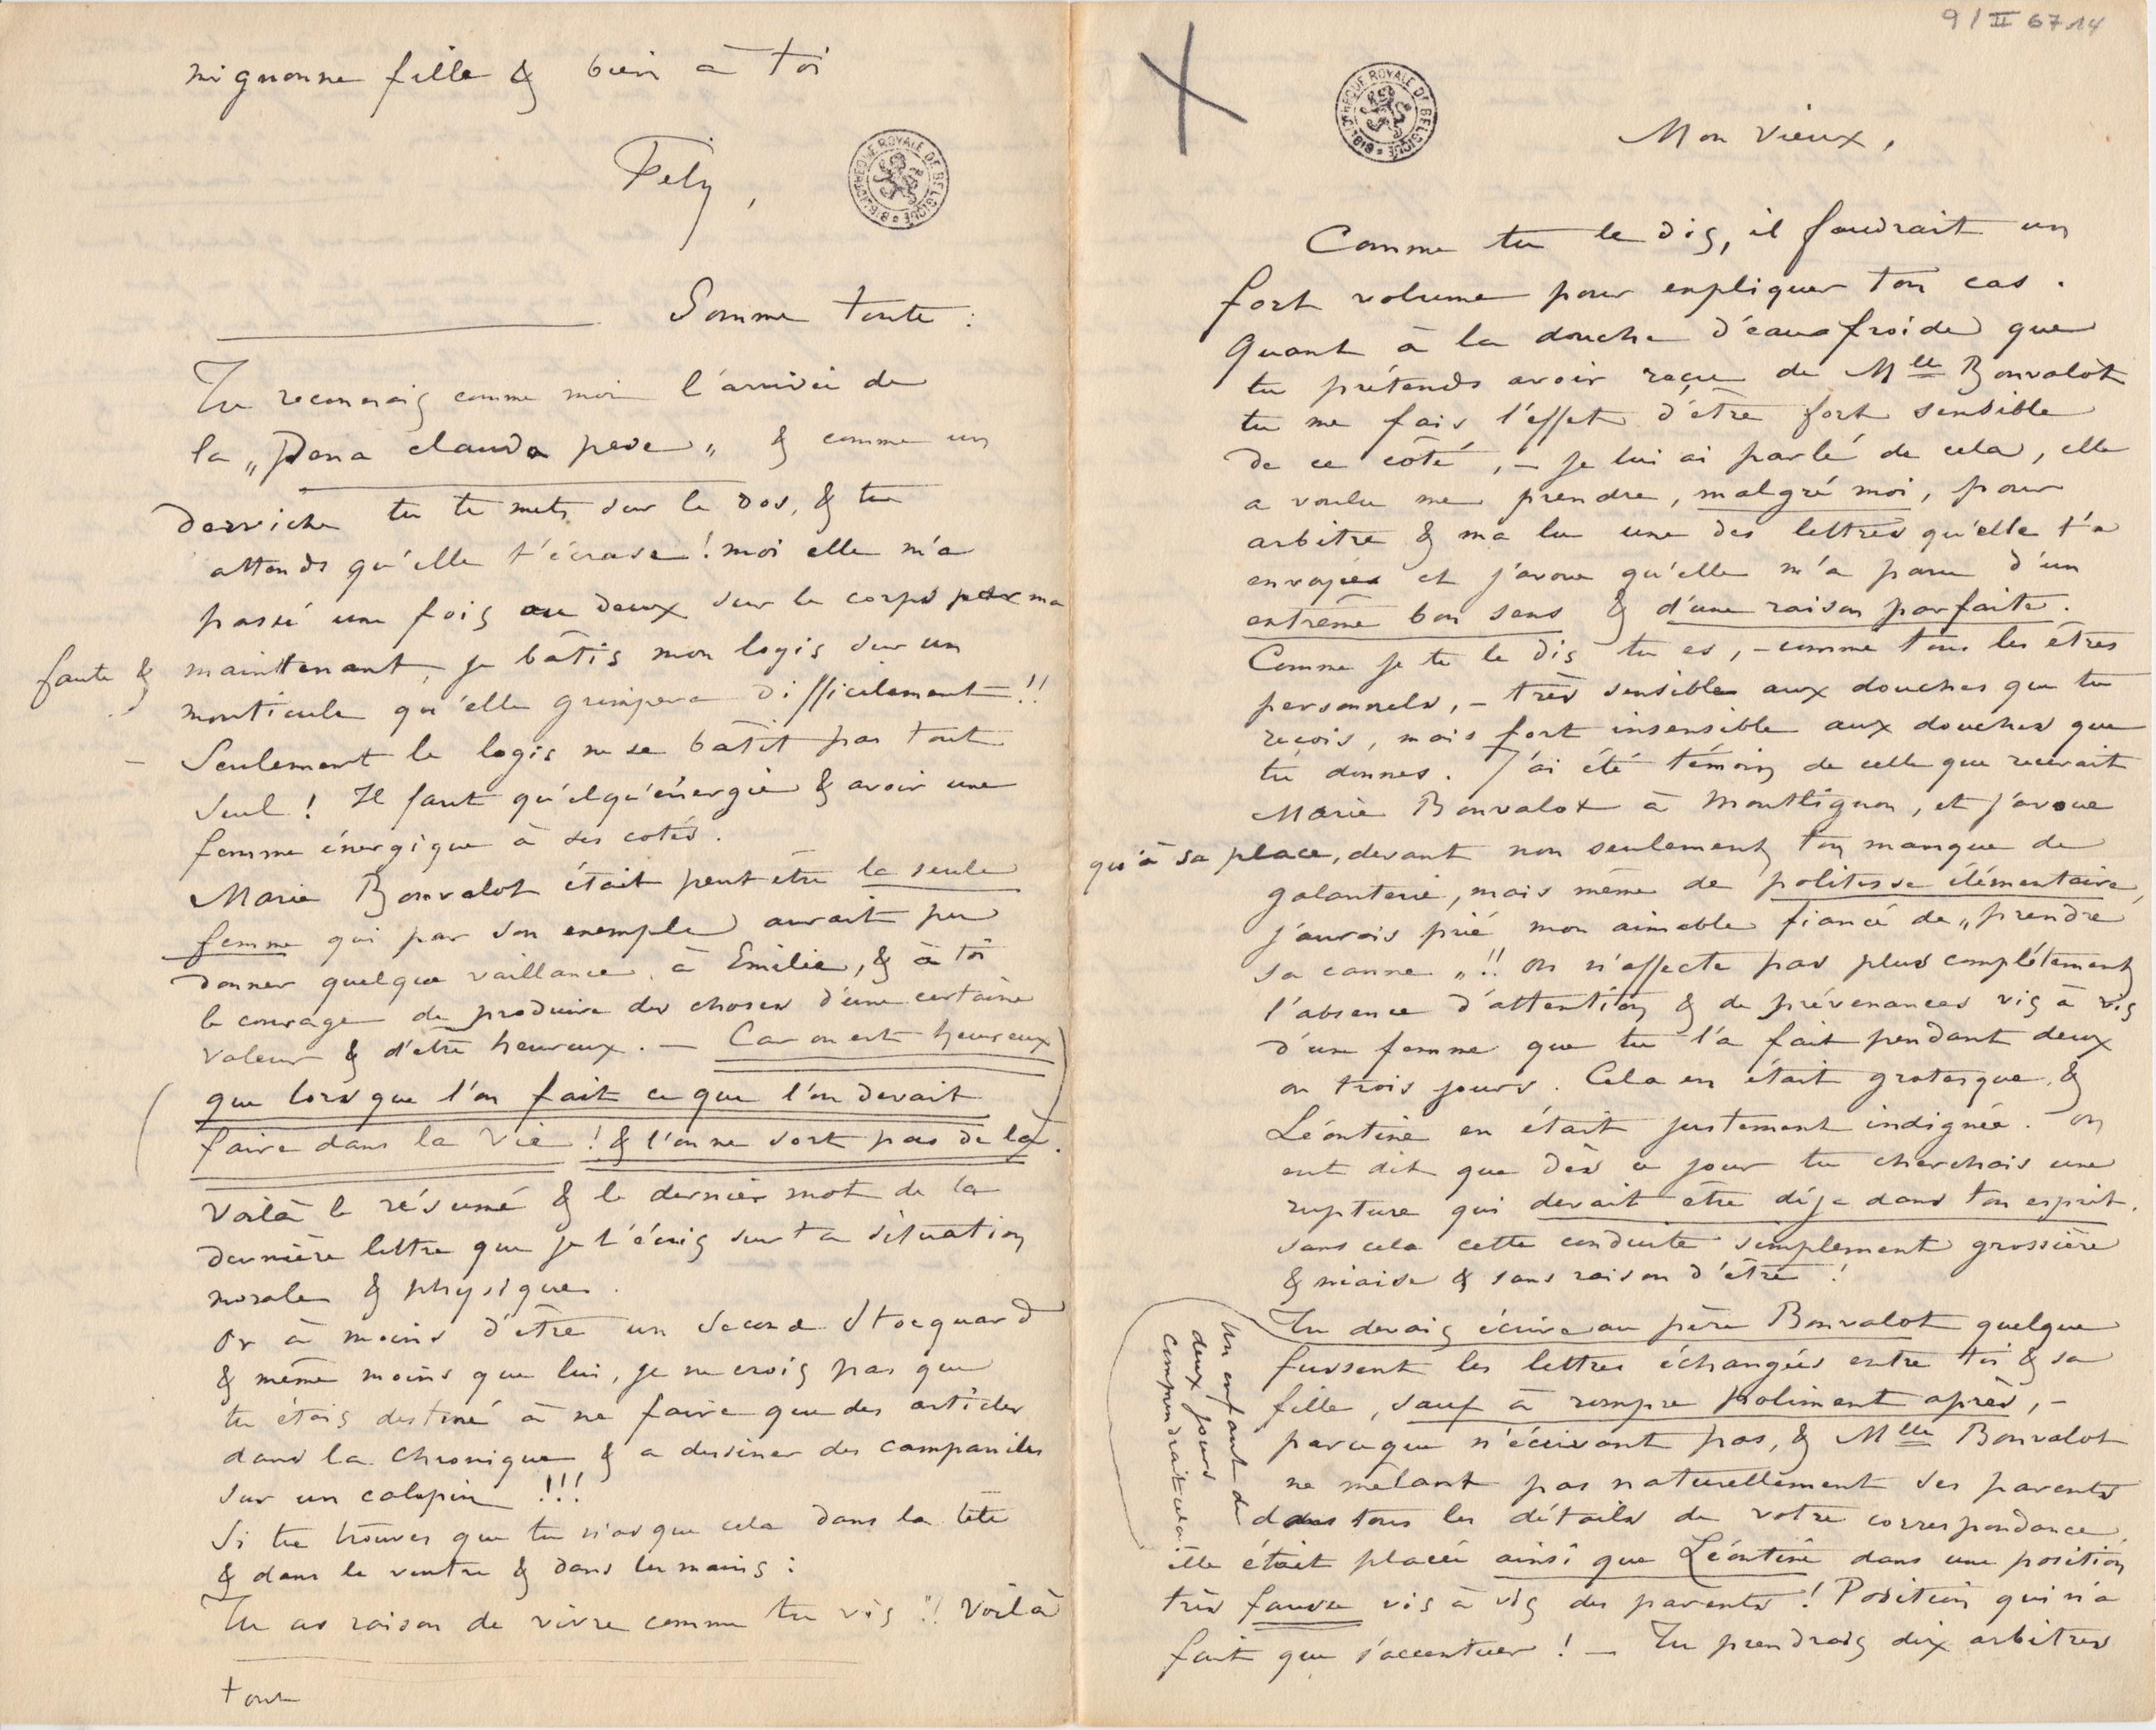 mignonne fille & bien à toi
Fély,
Somme toute :
Tu reconnais comme moi l'arrivée de
la „Pœna claudo pede„ & comme un
derviche tu te mets sur le dos, & tu
attends qu'elle t'écrase ! moi elle m'a
passé une fois ou deux sur le corps par ma
faute & maintenant, je bâtis mon logis sur un
monticule qu'elle grimpera difficilement !!
– Seulement le logis ne se bâtit pas tout
seul ! Il faut qu'elqu'énergie & avoir une
femme énergique à ses cotés.
Marie Bonvalot était peut être la seule
femme qui par son exemple aurait pu
donner quelque vaillance à Emilie, & à toi
le courage de produire des choses d'une certaine
valeur & d'être heureux. — Car on est heureux
que lorsque l'on fait ce que l'on devait
faire dans la vie ! & l'on ne sort pas de là.
Voilà le résumé & le dernier mot de la
dernière lettre que je t'écris sur ta situation
morale & physique.
Or à moins d'être un second Stocquard
& même moins que lui, je ne crois pas que
tu étais destiné à ne faire que des articles
dans la Chronique & a dessiner des campaniles
sur un calepin !!!
Si tu trouves que tu n'as que cela dans la tête
& dans le ventre & dans les mains :
Tu as raison de vivre comme tu vis !! Voilà
tout
9/II 67.14
BIBLIOTHEQUE ROYALE DE BELGIQUE
Mon Vieux,
Comme tu le dis, il faudrait un
fort volume pour expliquer ton cas.
Quant à la douche d'eau froide que
tu prétends avoir reçue de Mlle Bonvalot
tu me fais l'effet d'être fort sensible
de ce côté, – je lui ai parlé de cela, elle
a voulu me prendre, malgré moi, pour
arbitre & m'a lu une des lettres qu'elle t'a
envoyées et j'avoue qu'elle m'a paru d'un
extrême bon sens & d'une raison parfaite.
Comme je te le dis tu es, – comme tous les êtres
personnels, – très sensible aux douches que tu
reçois, mais fort insensible aux douches que
tu donnes. J'ai été témoin de celle que recevait
Marie Bonvalot à Montlignon, et j'avoue
qu'à sa place, devant non seulement ton manque de
galanterie, mais même de politesse élémentaire,
j'aurais prié mon aimable fiancé de „prendre
sa canne„!! On n'affecte pas plus complétement
l'absence d'attention & de prévenances vis à vis
d'une femme que tu l'a fait pendant deux
ou trois jours. Cela en était grotesque, &
Léontine en était justement indignée. On
eut dit que dès ce jour tu cherchais une
rupture qui devait être déja dans ton esprit.
sans cela cette conduite simplement grossière
& niaise & sans raison d'être !
Tu devais écrire au père Bonvalot quelque
fussent les lettres échangées entre toi & sa
fille, sauf à rompre poliment après, –
parceque n'écrivant pas, & Mlle Bonvalot
ne mêlant pas naturellement ses parents
dans tous les détails de votre correspondance
elle était placée ainsi que Léontine dans une position
très fausse vis à vis des parents ! Position qui n'a
fait que s'accentuer ! — Tu prendrais dix arbitres
Un enfant de
deux jours
comprendrait cela.